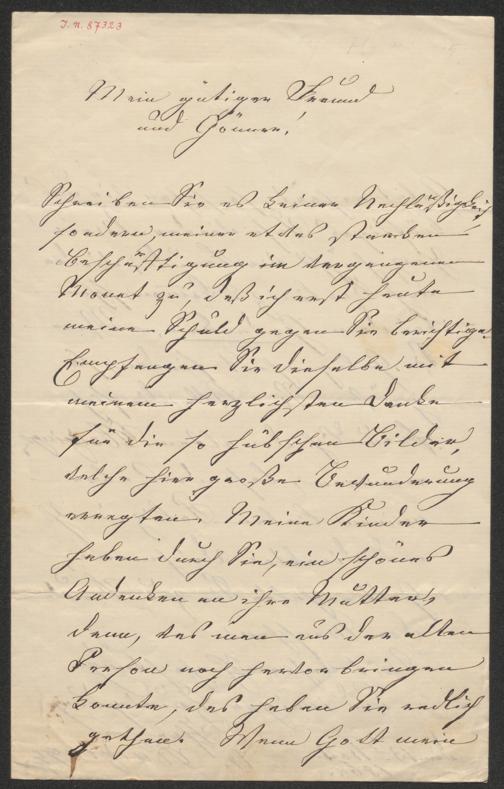 I. N. 87323
Mein gütiger Freund
und Gönner!
Schreiben Sie es keiner Nachlässigkeit
sondern, meiner etwas starken
Beschäftigung im vergangenen
Monat zu, daß ich erst heute
meine Schuld gegen Sie berichtige.
Empfangen Sie dieselbe mit
meinem herzlichsten Danke
für die so hübschen Bilder,
welche hier große Bewunderung
erregten. Meine Kinder
haben durch Sie, ein schönes
Andenken an ihre Mutter,
denn, was man aus der alten
Person noch hervor bringen
konnte, das haben Sie redlich
gethan. Wenn Gott mein